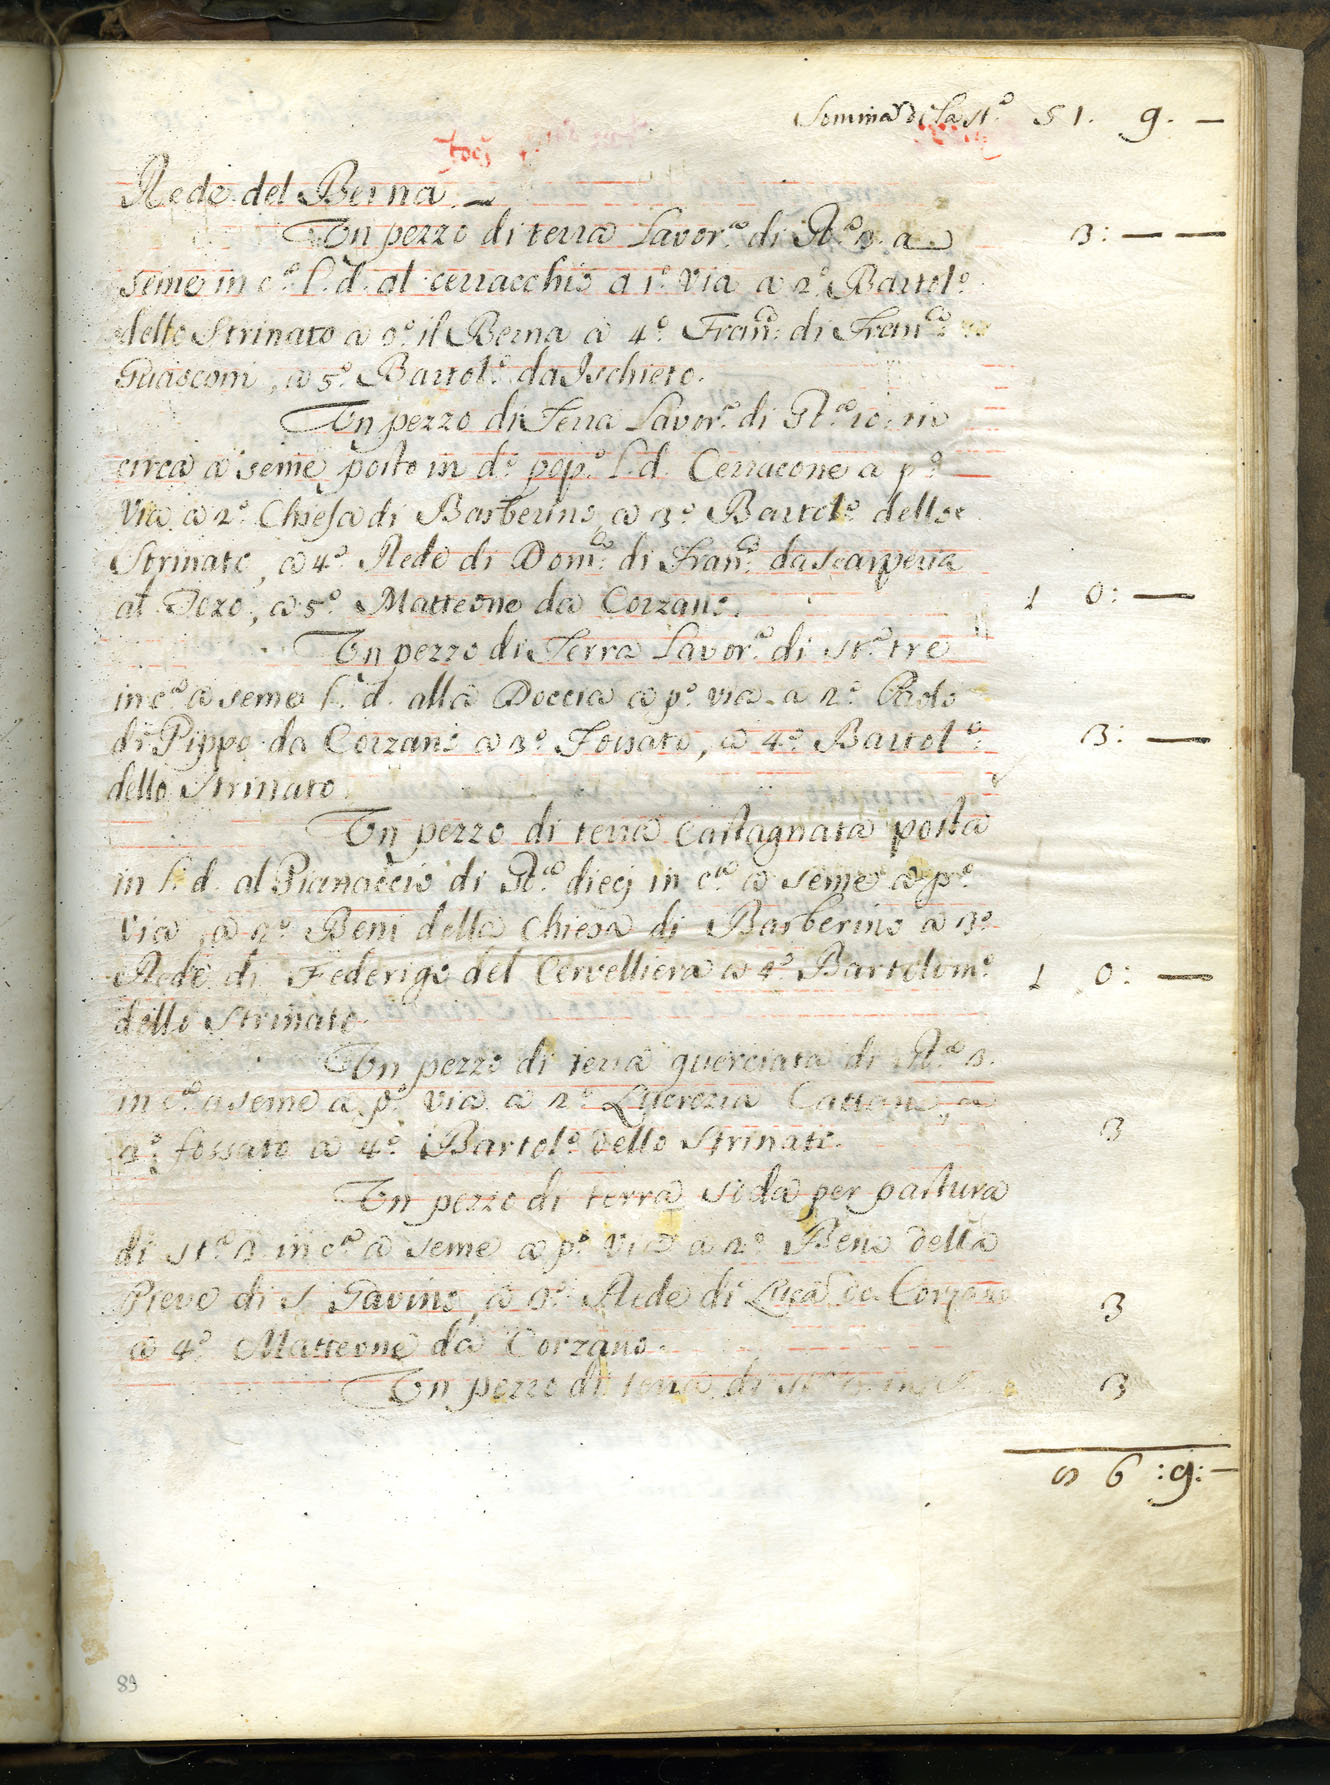 Somma di la st.º 51. 9. —
Rede del Berna. —
Un pezzo di terra Lavor.ª di St.ª 3. a 3: — —
seme in c.ª l. d. al cerracchio a 1.º Via a 2.º Bartol.º
dello Strinato a 3.º il Berna a 4.º Fran.co di Fran.co
Guasconi, a 5.º Bartol.º da Ischieto.
Un pezzo di Terra Lavor.ª di St.ª 10. in
circa a seme posto in d.º pop.º l. d. Cerracone a p.º
Via a 2.º Chiesa di Barberino, a 3.º Bartol.º dello
Strinato, a 4.º Rede di Dom.co di Fran.co da Scarperia
al Pozo, a 5.º Matteone da Corzano. 1 0: —
Un pezzo di Terra Lavor.ª di st.ª tre
in c.ª a seme l. d. alla Doccia a p.º via a 2.º Paolo
di Pippo da Corzano a 3.º Fossato, a 4.º Bartol.º 3: —
dello Strinato.
Un pezzo di terra Castagnata posta
in l. d. al Pianaccio di St.ª dieci in c.ª a seme a p.º
Via, a 2.º Beni della Chiesa di Barberino a 3.º
Rede di Federigo del Cervelliera a 4.º Bartolom.º 1 0: —
dello Strinato.
Un pezzo di terra querciata di St.ª 3.
in c.ª a seme a p.º via a 2.º Lucrezia Cattani, a 3
3.º fossato a 4.º Bartol.º dello Strinato.
Un pezzo di terra soda per pastura
di st.ª 3 in c.ª a seme a p.º Via a 2.º Beni della
Pieve di S. Gavino, a 3.º Rede di Luca da Corzano 3
a 4.º Matteone da Corzano.
Un pezzo di terra di st.ª 3. in 3
8 6 :9: —
89